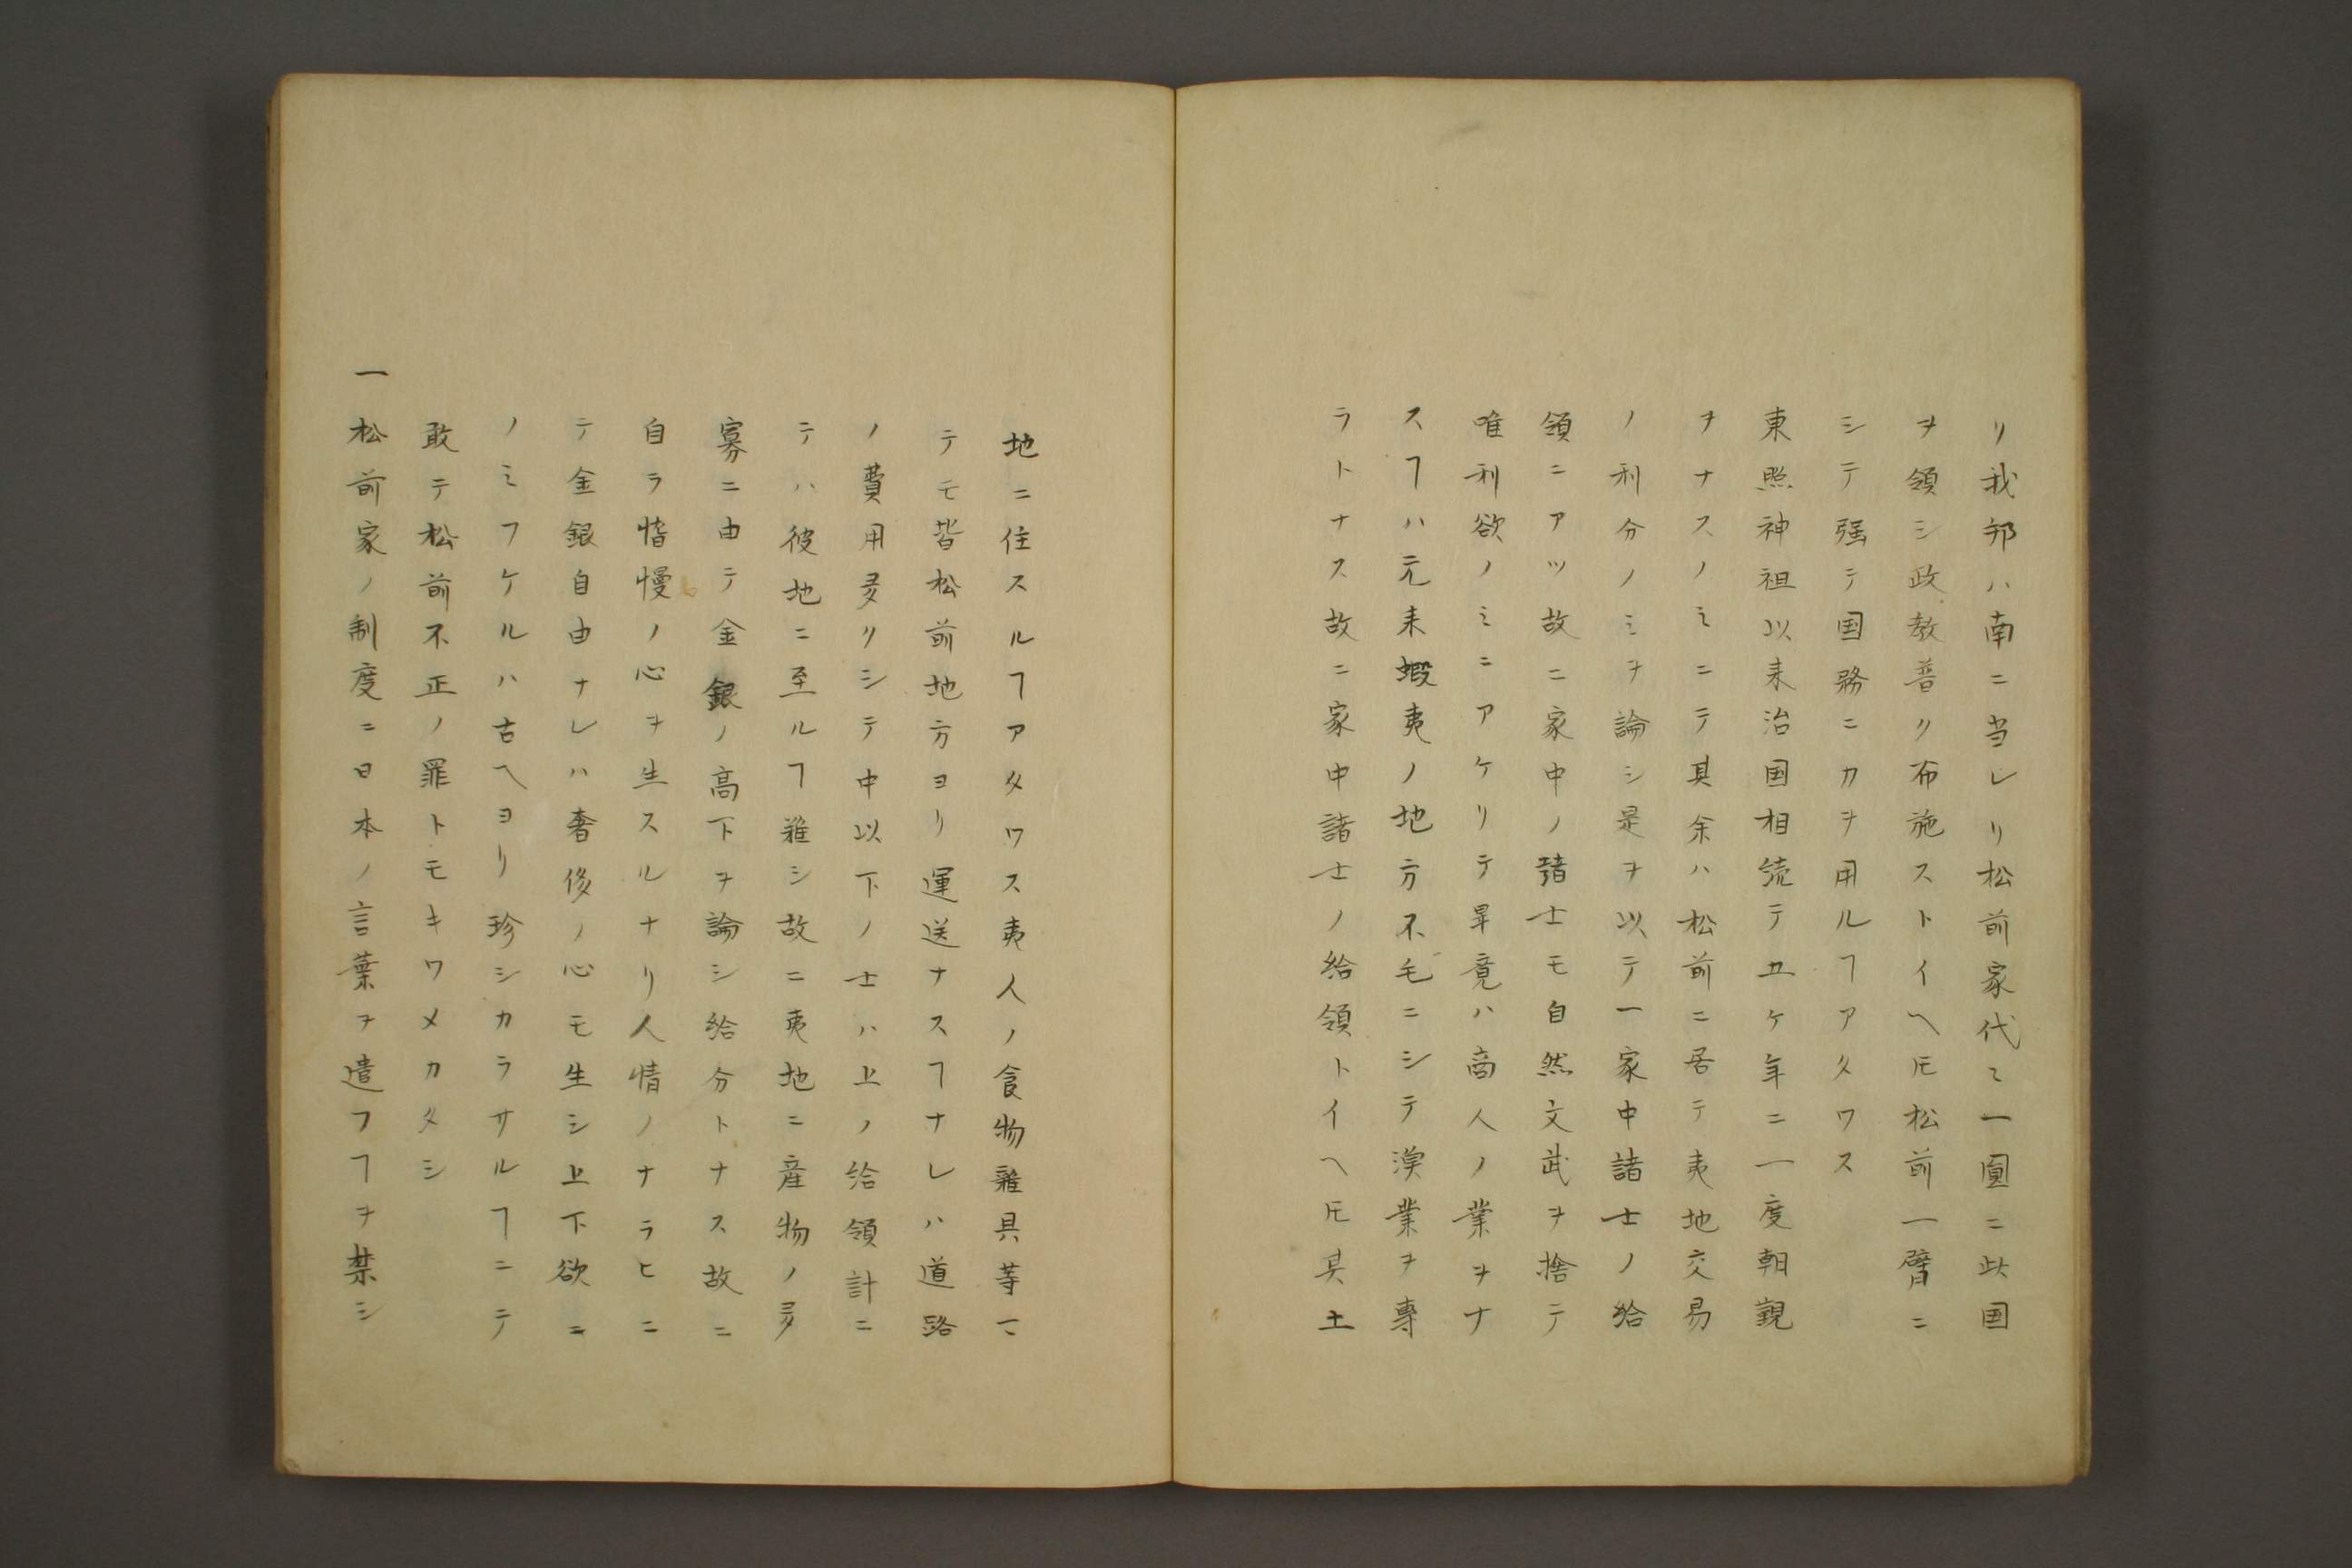 リ我邦ハ南ニ当レリ松前家代〻一圓ニ此国
ヲ領シ政教普ク布施ストイヘ𪜈松前一臂ニ
シテ强テ国務ニカヲ用ルヿアタワス
東照神祖以来治国相続テ五ケ年ニ一度朝覲
ヲナスノミニテ其余ハ松前ニ居テ夷地交易
ノ利分ノミヲ論シ是ヲ以テ一家中諸士ノ給
領ニアツ故ニ家中ノ諸士モ自然文武ヲ捨テ
唯利欲ノミニアケリテ畢竟ハ商人ノ業ヲナ
スヿハ元来蝦夷ノ地方不毛ニシテ漁業ヲ専
ラトナス故ニ家中諸士ノ給領トイヘ𪜈其土
地ニ住スルヿアタワス夷人ノ食物雑具等マ
テモ皆松前地方ヨリ運送ナスヿナレハ道路
ノ費用多クシテ中以下ノ士ハ上ノ給領計ニ
テハ彼地ニ至ルヿ難シ故ニ夷地ニ産物ノ多
寡ニ由テ金銀ノ高下ヲ論シ給分トナス故ニ
自ラ惰慢ノ心ヲ生スルナリ人情ノナラヒニ
テ金銀自由ナレハ奢侈ノ心モ生シ上下欲ニ
ノミフケルハ古ヘヨリ珍シカラサルヿニテ
敢テ松前不正ノ罪トモキワメカタシ
一松前家ノ制度ニ日本ノ言葉ヲ遣フヿヲ禁シ